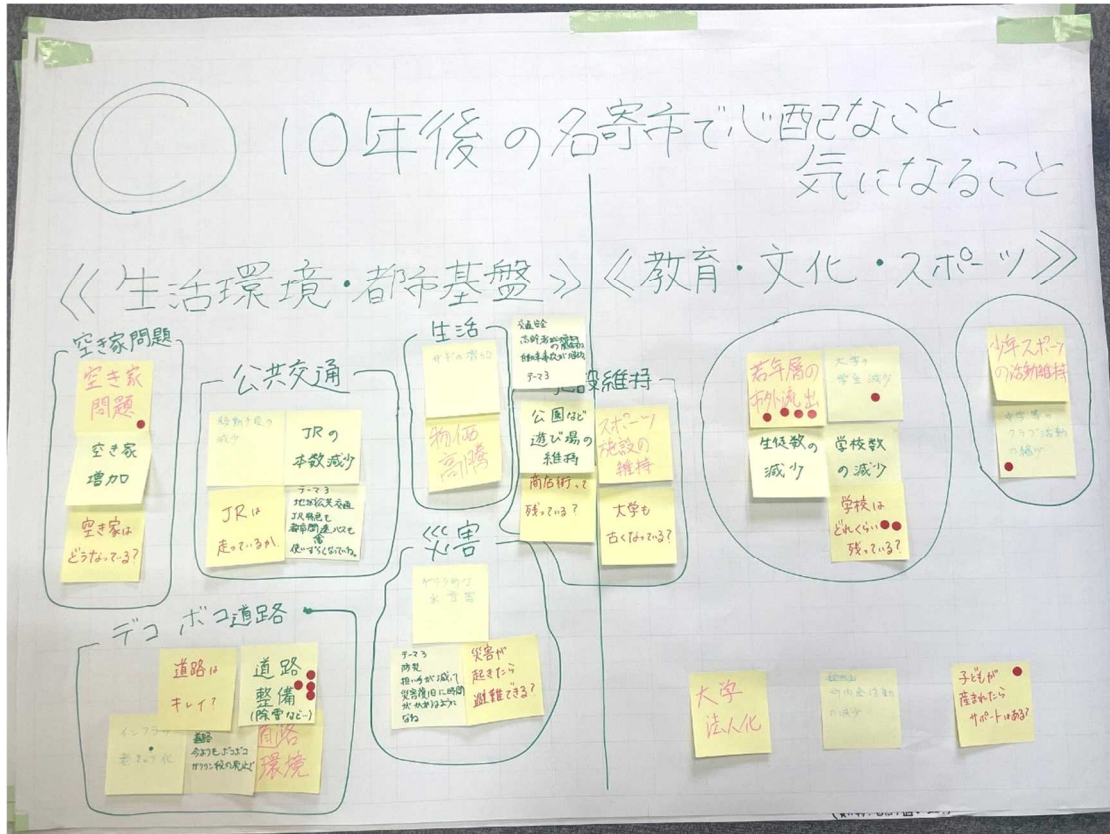 10年後の名寄市で心配なこと、
気になること
≪生活環境・都市基盤≫
≪教育・文化・スポーツ≫
空き家問題
空き家
問題
空き家
増加
空き家は
どうなっている？
公共交通
移動手段の
減少
JRの
本数減少
JRは
走っているか
テーマ3
地域公共交通
JR特急も
都市間連バスも
使いずらくなっていね。
生活
物価
高騰
交通安全
高齢者が増加
テーマ3
施設維持
公園など
遊び場の
維持
スポーツ
施設の
維持
商店街って
残っている？
大学も
古くなっている？
災害
水害
テーマ3
防災
担い手が減って
災害復旧に時間
がかかるように
なね
災害が
起きたら
避難できる？
デコボコ道路
道路は
キレイ？
道路
整備
(除雪など…)
インフラ
老きゅう化
道路
今よりもボコボコ
道路
環境
若年層の
市外流出
大学の
学生減少
生徒数の
減少
学校数
の減少
学校は
どれくらい
残っている？
少年スポーツ
の活動維持
中学等の
クラブ活動
の縮少
大学
法人化
町内会活動
の減少
子どもが
産まれたら
サポートはある？